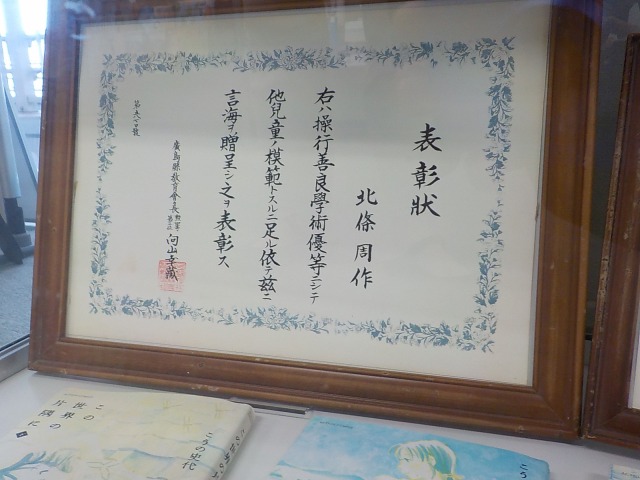 表彰状
北條周作
右ハ操行善良學術優等ニシテ
他兒童ノ模範トスルニ足ル依テ茲ニ
言海ヲ贈呈シ之ヲ表彰ス
廣島縣教育會長
向山幸藏
この
世界の
片隅に
こうの史代
こう